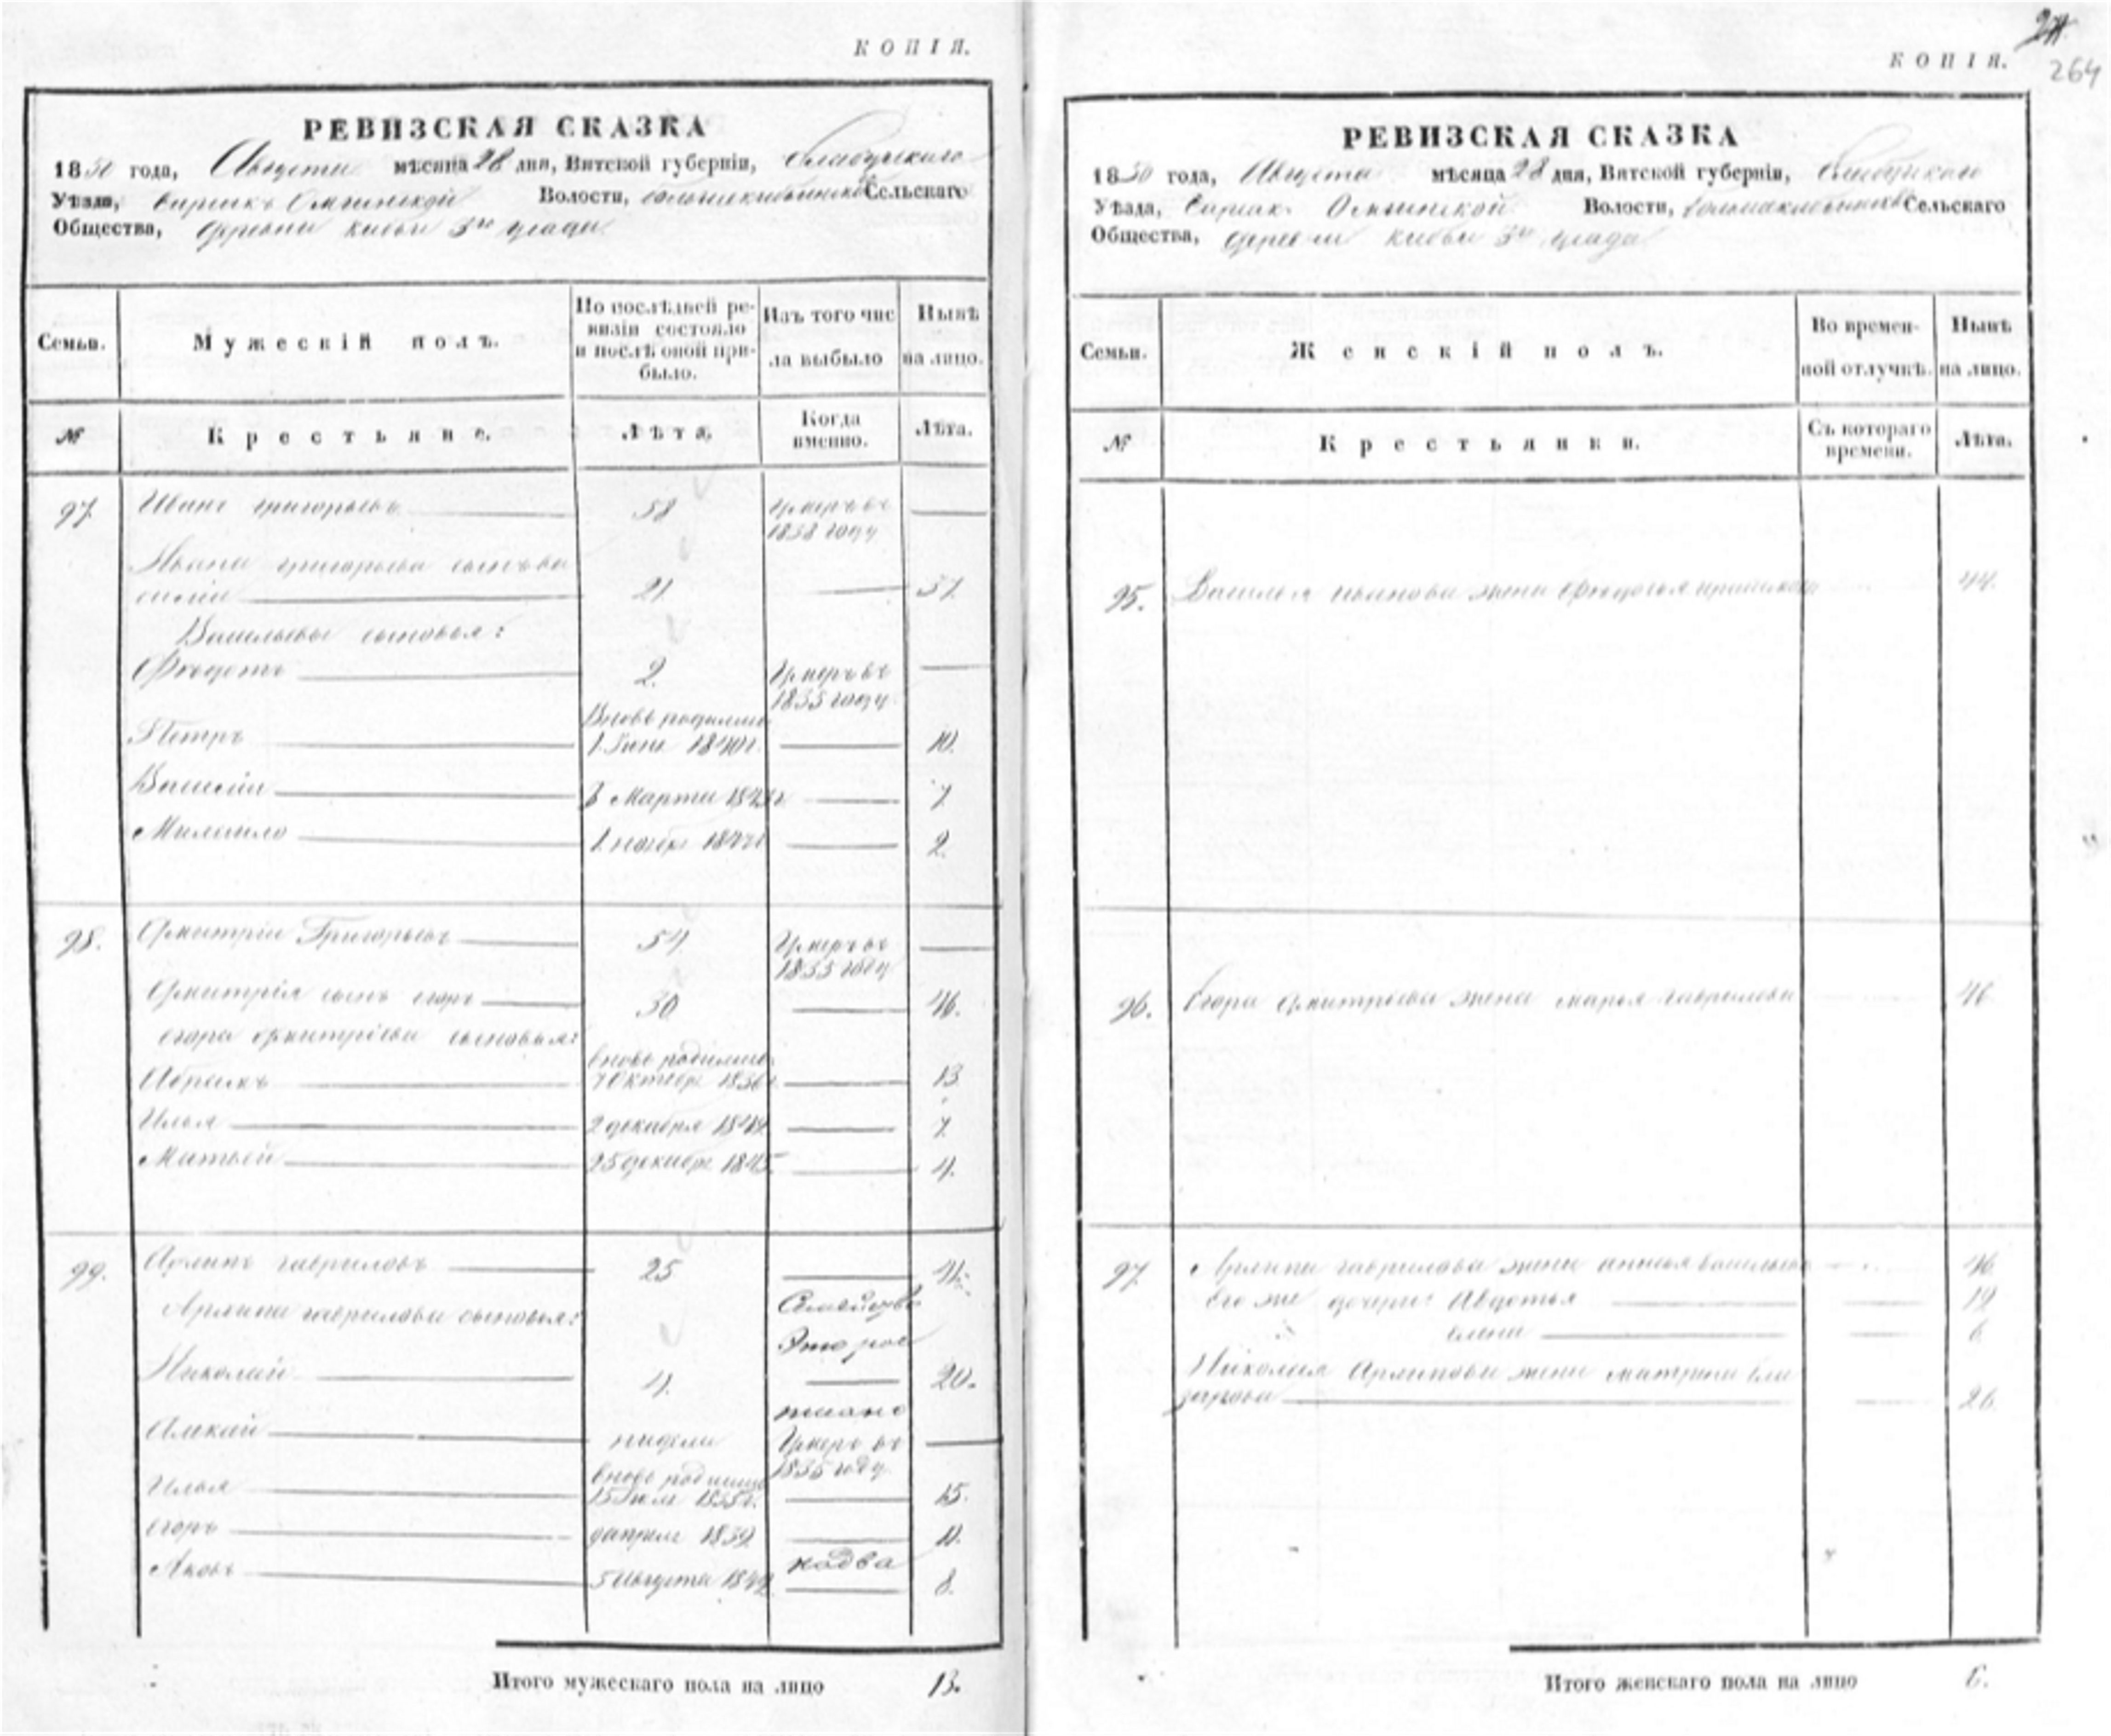 КОПІЯ.
РЕВИЗСКАЯ СКАЗКА
1850 года, Августа мѣсяца 28 дня, Вятской губерніи, Елабужскаго
Уѣзда, Волости, Сельскаго
Общества, деревни
Семьи. Мужескій полъ. По послѣдней ре-
визіи состояло
и послѣ оной при-
было. Изъ того чис
ла выбыло Нынѣ
на лицо.
№ Крестьяне. Лѣта. Когда
именно. Лѣта.
97. Иванъ Григорьевъ 58 Умеръ въ
1838 году
Ивана Григорьева сынъ Ва
силій 21 37.
Васильевы сыновья:
Федотъ 2. Умеръ въ
1835 году.
Вновь родились
Петръ 10.
Василій Марта 7
Михайло 2.
98. Дмитрій Григорьевъ 54 Умеръ въ
1835 году
Дмитрія сынъ Егоръ 30 46.
Егора Дмитріева сыновья:
вновь родились
Абрамъ 13
Илья 2 декабря 7.
Матвей 25 декабр 1845. 4.
99. Архипъ Гавриловъ 25 41.
Архипа Гаврилова сыновья:
Семейство
Это рос
Николай 4. 20.
писано
недели Умеръ въ
1835 году.
вновь родились
Илья 15 1835 г. 15.
Егоръ 1839 11.
надва
Яковъ 5 Августа 1842 8.
Итого мужескаго пола на лицо 13.
КОПІЯ.
264
РЕВИЗСКАЯ СКАЗКА
1850 года, Августа мѣсяца 28 дня, Вятской губерніи, Елабужскаго
Уѣзда, Волости, Сельскаго
Общества, деревни
Семьи. Женскій полъ. Во времен-
ной отлучкѣ. Нынѣ
на лицо.
№ Крестьянки. Съ котораго
времени. Лѣта.
95. Василья Иванова жена Федосья 44.
96. Егора Дмитріева жена Марья Гаврилова 46
97. Архипа Гаврилова жена Анна Васильева 46
Его же дочери: Авдотья 19
Елена 6
Николая Архипова жена Матрена Ели
зарова 26.
Итого женскаго пола на лицо 6.